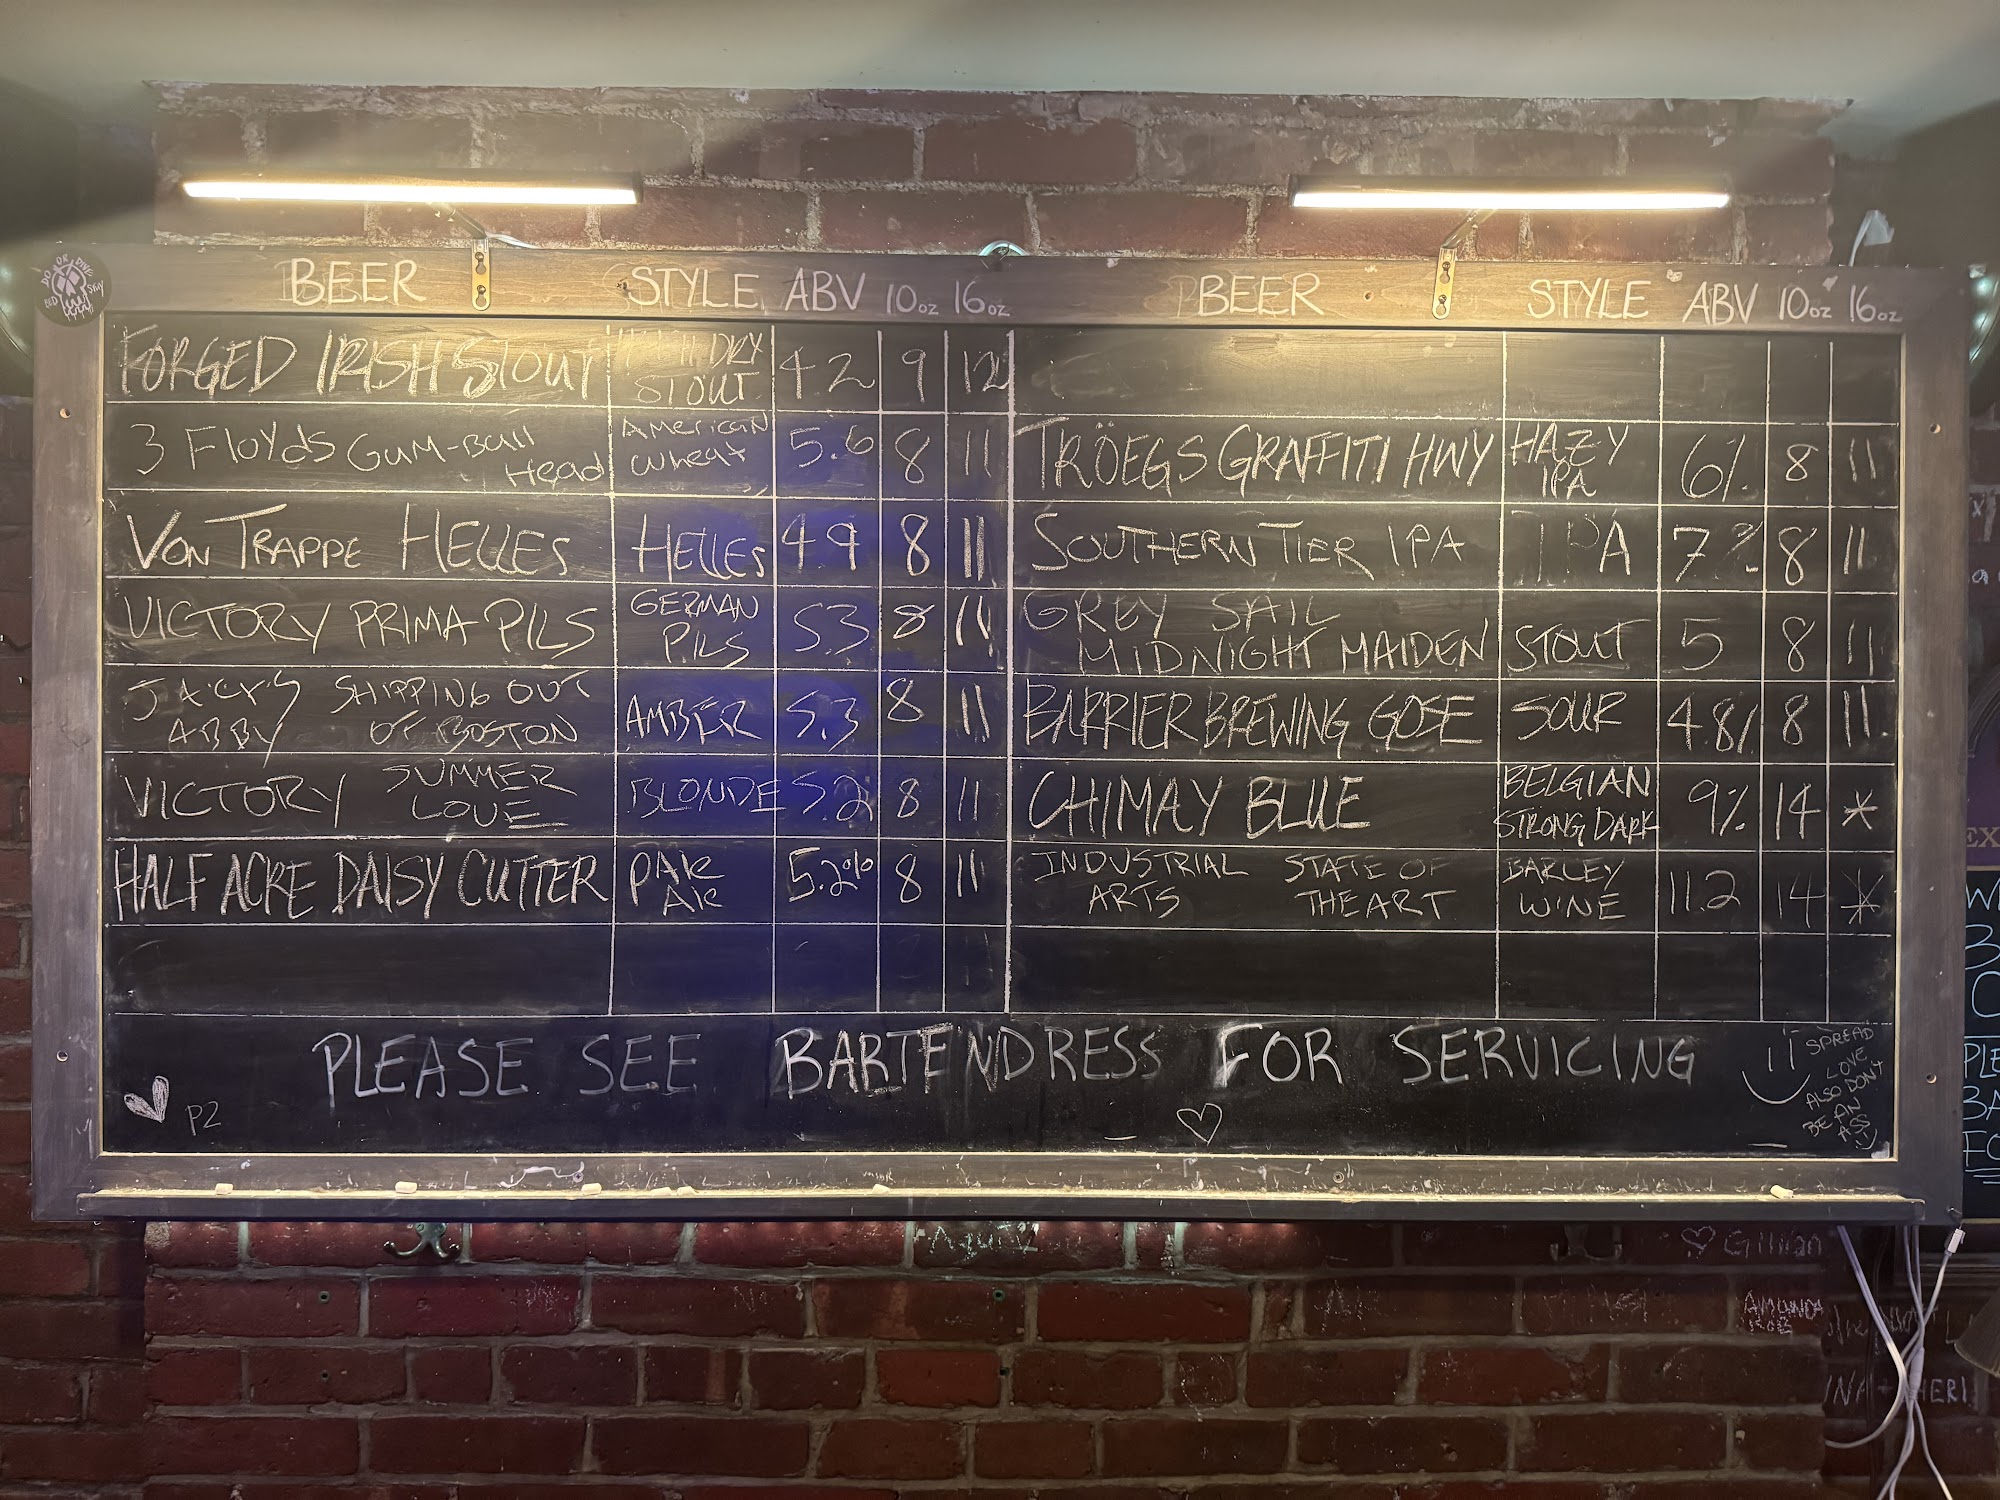 BEER STYLE ABV 10oz 16oz BEER STYLE ABV 10oz 16oz
FORGED IRISH STOUT DRY STOUT 4.2 9 12
3 FLOYDS GUM-BALL Head AmericaN wheat 5.6 8 11
VON TRAPPE HELLES HELLES 4.9 8 11
VICTORY PRIMA PILS GERMAN PILS 5.3 8 11
JACK'S ABBY SHIPPING OUT OF BOSTON AMBER 5.3 8 11
VICTORY SUMMER LOVE BLONDE 5.2 8 11
HALF ACRE DAISY CUTTER PAle Ale 5.2% 8 11
TRÖEGS GRAFFITI HWY HAZY IPA 6% 8 11
SOUTHERN TIER IPA IPA 7% 8 11
GREY SAIL MIDNIGHT MAIDEN STOUT 5 8 11
BARRIER BREWING GOSE SOUR 4.8% 8 11
CHIMAY BLUE BELGIAN STRONG DARK 9% 14 *
INDUSTRIAL ARTS STATE OF THE ART BARLEY WINE 11.2 14 *
PLEASE SEE BARTENDRESS FOR SERVICING
P2
SPREAD
LOVE
ALSO DON'T
BE AN
ASS
Gillian
AMUNDA